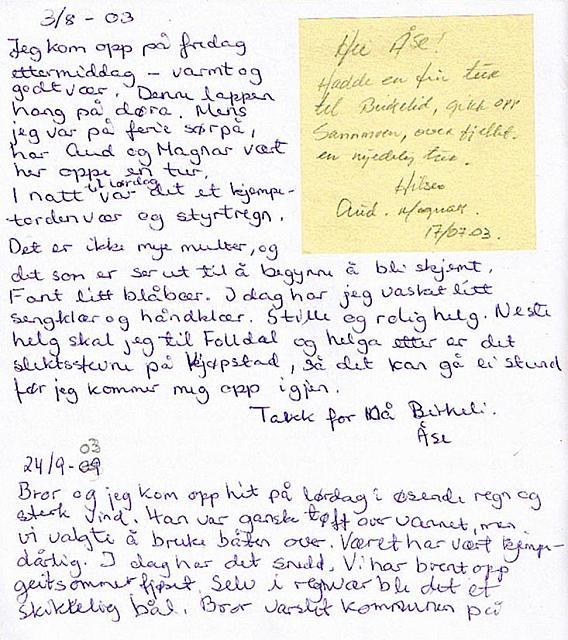 3/8 - 03
Jeg kom opp på fredag
ettermiddag – varmt og
godt vær. Denne lappen
hang på døra. Mens
jeg var på ferie sørpå,
har Aud og Magnar vært
her oppe en tur.
I natt til lørdag var det et kjempe-
tordenvær og styrtregn.
Det er ikke mye multer, og
det som er ser ut til å begynne å bli skjemt.
Fant litt blåbær. I dag har jeg vasket litt
sengklær og håndklær. Stille og rolig helg. Neste
helg skal jeg til Folldal og helga etter er det
slektsstevne på Kjøpstad, så det kan gå ei stund
før jeg kommer meg opp igjen.
Takk for nå Birkeli.
Åse
Hei Åse!
Hadde en fin tur
til Birkelid, gikk opp
over fjellet.
en nydelig tur.
Hilsen
Aud. Magnar.
17/07.03.
24/9-03
Bror og jeg kom opp hit på lørdag i øsende regn og
sterk vind. Han var ganske tøft over vannet, men
vi valgte å bruke båten over. Været har vært kjempe-
dårlig. I dag har det snødd. Vi har brent opp
geitsommerfjøset. Selv i regnvær ble det et
skikkelig bål. Bror varslet kommunen på